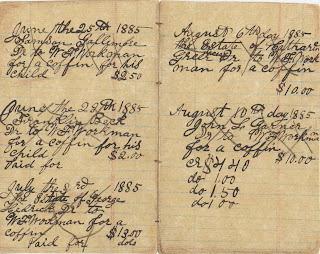 June the 25th 1885
Samson Gallimore
Dr to WF Workman
for a coffin for his
child $2.50
June the 29th 1885
Franklin Beck
Dr to WF Workman
for a coffin for his
child $2.00
Paid for
July the 3rd 1885
The Estate of George
Dr to
WF Workman for a
coffin $13.50
Paid for dols
August 6th day 1885
the Estate of
Dr to WF Work
man for a coffin
$10.00
August 10th day 1885
John L Garner
Dr to WF Workman
for a coffin
$10.00
CR $4.40
do 1.00
do 1.50
do 1.00